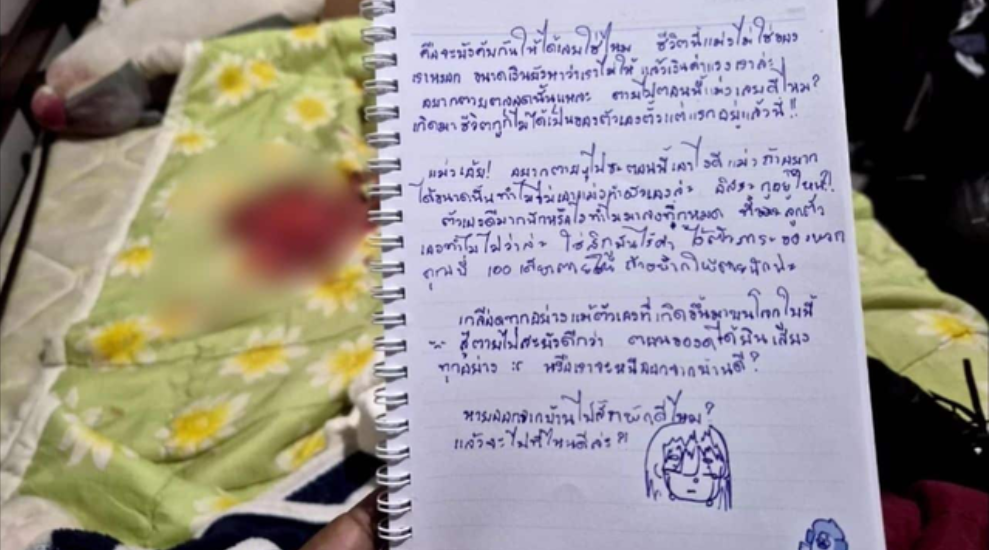 คือจะบังคับกันให้ได้เลยใช่ไหม ชีวิตนี้แม่งไม่ใช่ของ
เราหรอก ขนาดเงินยังหาว่าเราไม่ให้ แล้วเงินค่าแรงเราล่ะ
อยากตายตลอดนั้นแหละ ตายไปตอนนี้แม่งเลยดีไหม?
เกิดมาชีวิตกูก็ไม่ได้เป็นของตัวเองตั้งแต่แรกอยู่แล้วนี่!!
แม่งเอ้ย! อยากตายๆไปซะตอนนี้เอาไงดี แม่ง ถ้าอยาก
ได้ขนาดนั้นทำไมไม่ แม่งทำตัวเองล่ะ อิสระกูอยู่ไหน?!
ตัวเองดีมากนักหรือไงทำไมมาลงที่กูหมด ทีลูกตัว
เองทำไมไม่ว่าล่ะ ใช่สิกูมันไร้ค่า ไอ้ตัวภาระของพวก
คุณนี่ เดี๋ยวตายให้ ถ้าอยากให้ตายนักน่ะ
เกลียดทุกอย่างแม้ตัวเองที่เกิดขึ้นมาบนโลกใบนี้
สู้ตายไปซะยังดีกว่า ได้ยินเสียง
ทุกอย่าง :( หรือเราจะหนีออกจากบ้านดี?
หายออกจากบ้านไปสักพักดีไหม?
แล้วจะไปที่ไหนดีล่ะ?!